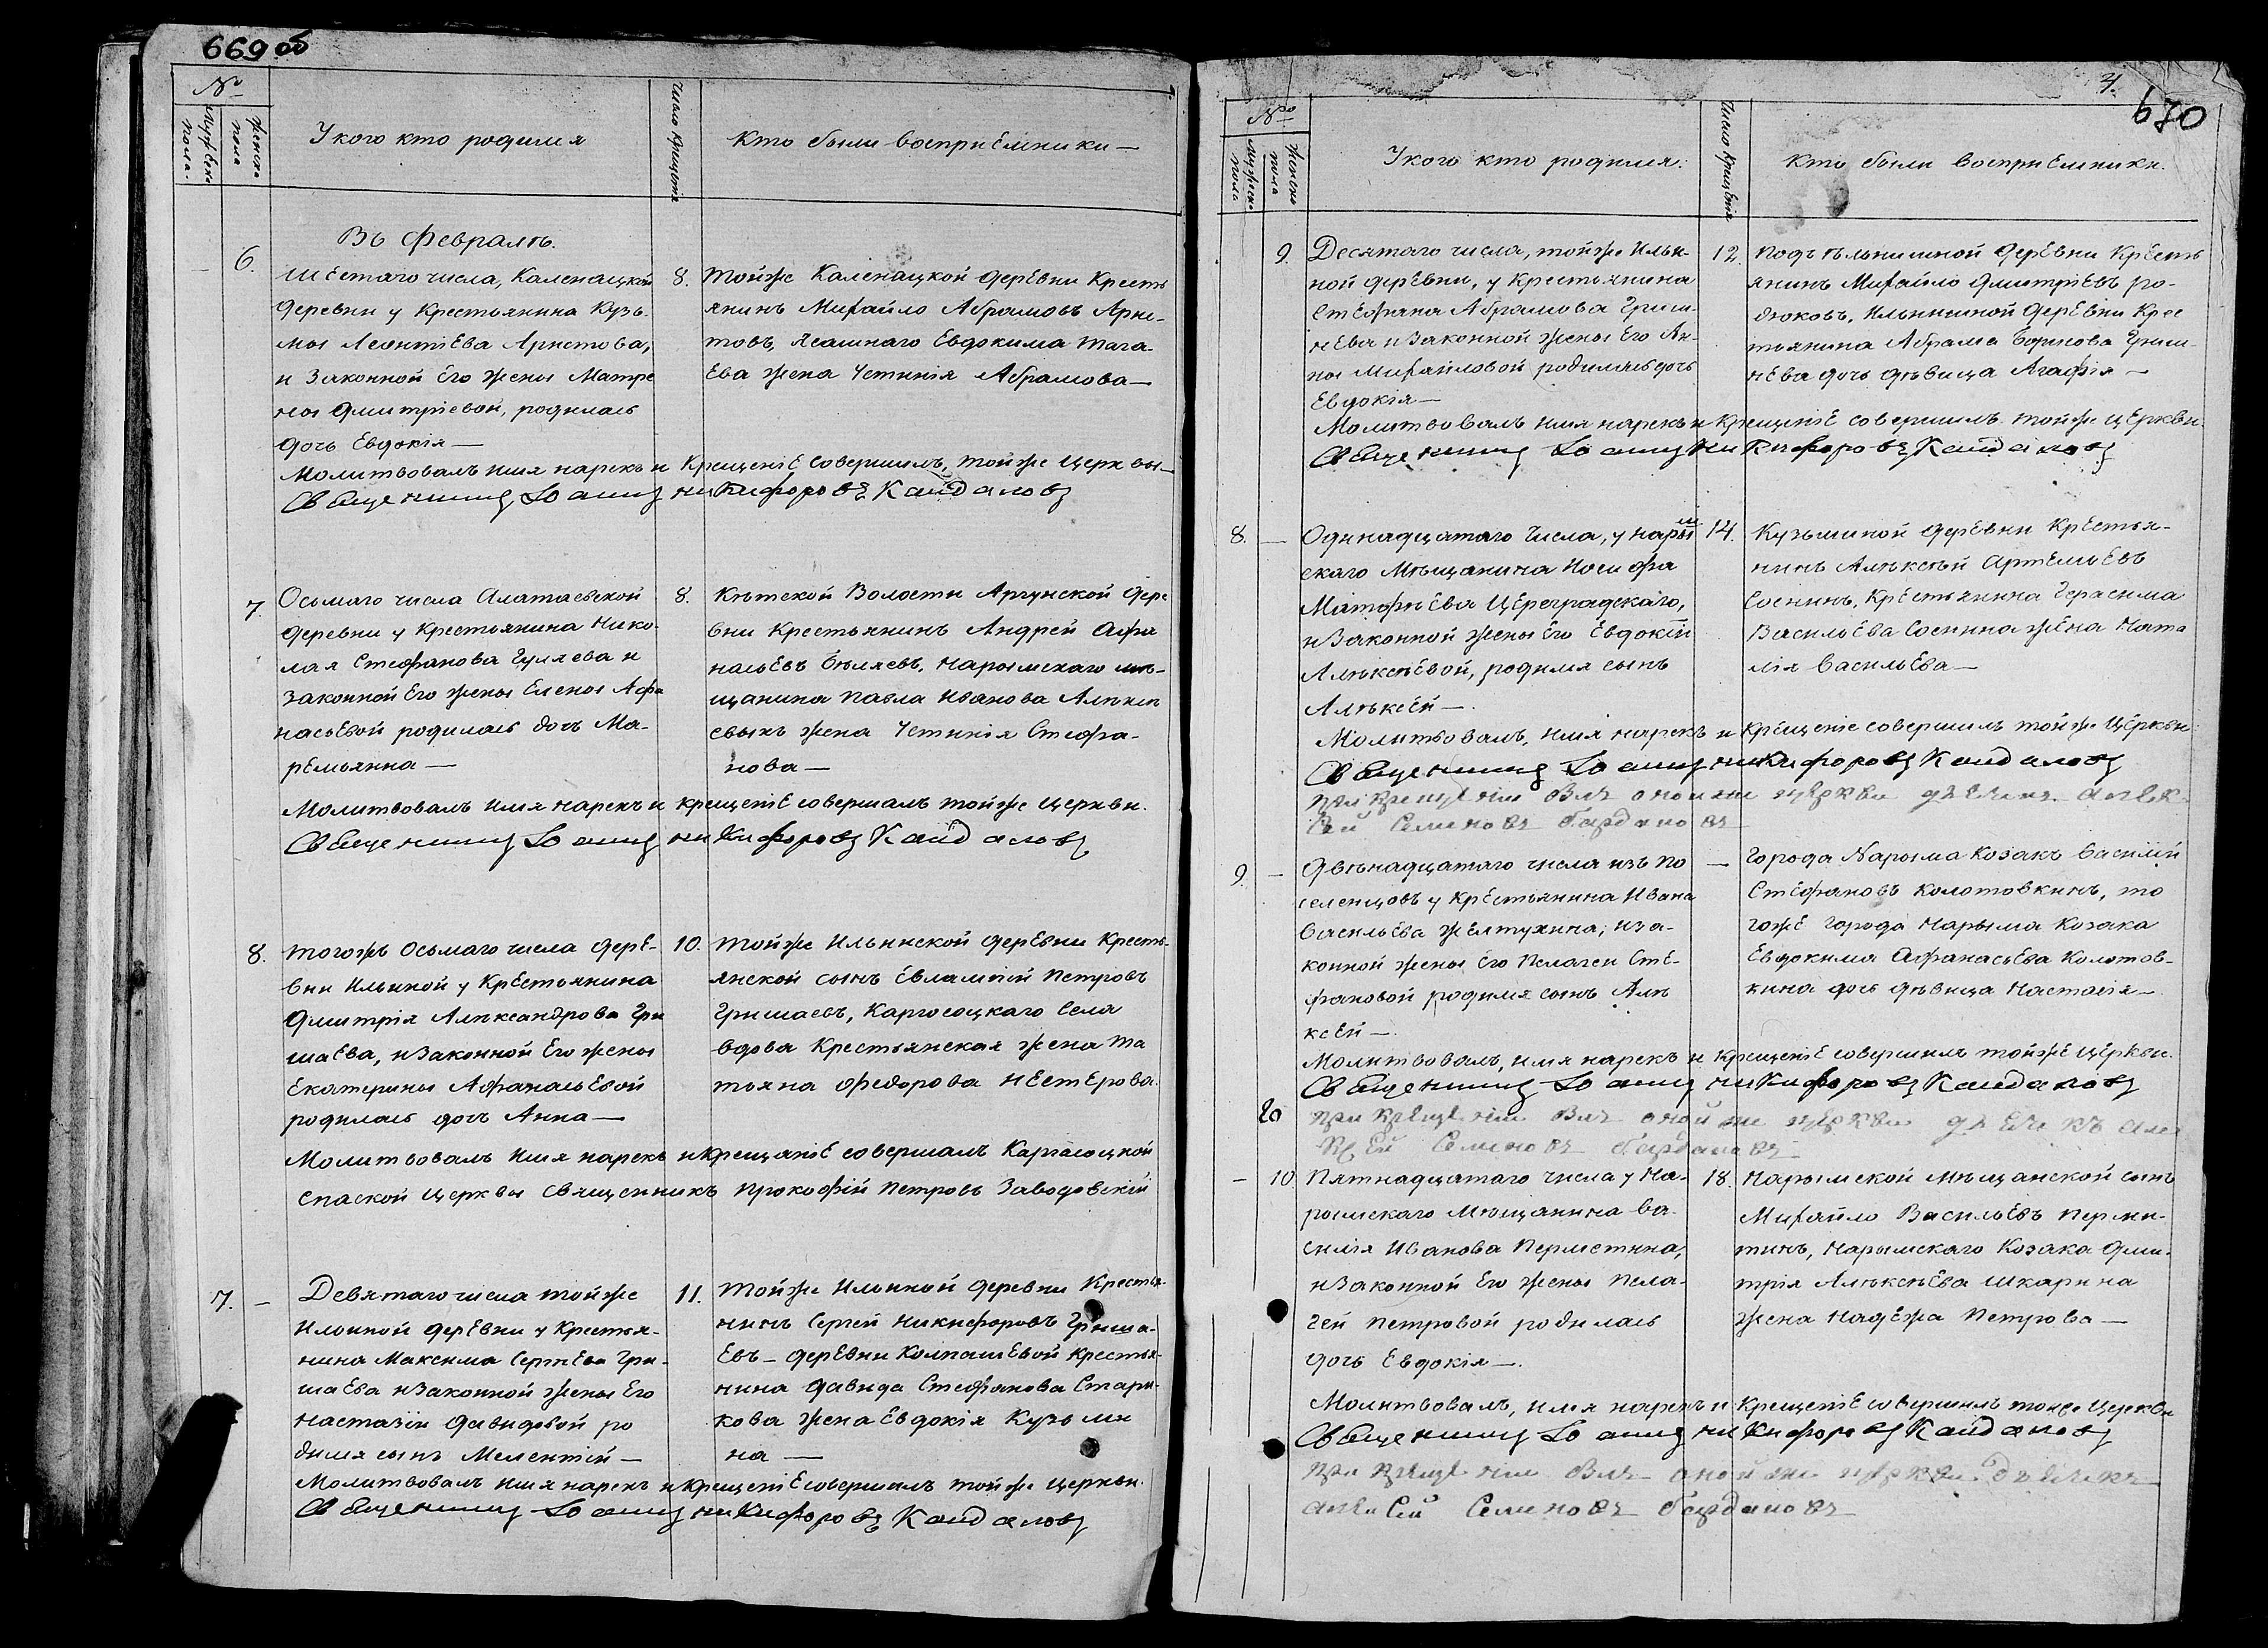 669 об
№
Мужеска пола.
Женска пола
У кого кто родился
Число крещенія
Кто были воспріемники —
Въ Февралѣ.
— 6. Шестаго числа, Каленацкой
деревни у крестьянина Кузь-
мы Леонтіева Аристова,
и законной его жены Матре
ны Дмитріевой, родилась
дочь Евдокія —
8. тойже Каленацкой деревни кресть
янинъ Михайло Абрамовъ Арис-
товъ, ясашнаго Евдокима Тага-
ева жена Устинія Абрамова —
Молитвовалъ имя нарекъ и крещеніе совершилъ, тойже церквы —
Священникъ Іоаннъ Никифоровъ Кайдаловъ
7. Осьмаго числа Алатаевской
деревни у крестьянина Нико-
лая Стефанова Гуляева и
законной его жены Елены Афа
насьевой родилась дочь Ма-
ремьянна —
8. Кѣтской волости Аргунской дере
вни крестьянинъ Андрей Афа
насьевъ Бѣляевъ, Нарымскаго мѣ-
щанина Павла Иванова
жена Устинія Стефа-
нова —
Молитвовалъ имя нарекъ и крещеніе совершалъ тойже церкви.
Священникъ Іоаннъ Никифоровъ Кайдаловъ
8. тогожъ Осьмаго числа дере-
вни Ильиной у крестьянина
Дмитрія Алѣксандрова Гри
шаева, и законной его жены
Екатерины Афанасьевой
родилась дочь Анна —
10. тойже Ильинской деревни кресть-
янской сынъ Евлампій Петровъ
Гришаевъ, Каргосоцкаго села
вдова крестьянская жена Та
тьяна Федорова Нестерова.
Молитвовалъ имя нарекъ и крещаніе совершалъ Каргасоцкой
Спаской церквы священникъ Прокофій Петровъ Заводовскій
7. — Девятаго числа тойже
Илоиной деревни у крестья-
нина Максима Сергѣева Гри-
шаева и законной жены его
Настазіи Давидовой ро
дился сынъ Мелентій —
11. тойже Илоиной деревни крестья-
нинъ Сергей Никифоровъ Гриша-
евъ — деревни Колпашевой крестья-
нина Давида Стефанова Стари-
кова жена Евдокія Кузьми
на —
Молитвовалъ имя нарекъ и крещеніе совершилъ тойже церкви.
Священникъ Іоаннъ Никифоровъ Кайдаловъ
4.
670
№
Мужеска пола
Женска пола
У кого кто родился.
Число крещенія
Кто были воспріемники.
9. Десятаго числа, тойже Ильи-
ной деревни, у крестьянина
Стефана Абрамова Гриш-
нева и законной жены его Ан-
ны Михайловой родилась дочь
Евдокія —
12. Подъѣльнишной деревни кресть
янинъ Михайло Дмитріевъ Ро-
дюковъ, Ильинишной деревни крес
тьянина Абрама Борисова Гриш-
нева дочь дѣвица Агафія —
Молитвовалъ имя нарекъ и крещеніе совершилъ тойже церкви.
Священникъ Іоаннъ Никифоровъ Кайдаловъ
8. — Одинадцатаго числа, у Нарым
скаго мѣщанина Иосифа
Матофѣева Цереградскаго,
и законной жены его Евдокіи
Алѣксѣевой, родился сынъ
Алѣксей —
14. Кузьминой деревни крестья-
нинъ Алѣксѣй Артемьевъ
Соснинъ, крестьянина Герасима
Васильева Соснина жена Ната
лія Васильева —
Молитвовалъ, имя нарекъ и крещеніе совершилъ тойже церкви
Священникъ Іоаннъ Никифоровъ Кайдаловъ
при крещеніи былъ оной же церкви дьячекъ алек
сѣй Семеновъ
9. — Двѣнадцатаго числа изъ по
селенцовъ у крестьянина Ивана
Васильева Желтухина, и за-
конной жены его Пелагеи Сте-
фановой родился сынъ Алѣ
ксей —
— города Нарыма козакъ Василій
Стефановъ Колотовкинъ, то
гоже города Нарыма козака
Евдокима Афанасьева Колотов-
кина дочь дѣвица Настасія —
Молитвовалъ, имя нарекъ и крещеніе совершилъ тойже церкви.
Священникъ Іоаннъ Никифоровъ Кайдаловъ
20 при крещеніи былъ оной же церкви дьячекъ але
ксей Семеновъ
— 10. Пятнадцатаго числа у На-
рымскаго мѣщанина Ва-
силія Иванова Пермитина,
и законной его жены Пела-
геи Петровой родилась
дочь Евдокія —
18. Нарымской мѣщанской сынъ
Михайло Васильевъ Перми-
тинъ, Нарымскаго козака Дми-
трія Алѣксѣева Шкарина
жена Надежа Петрова —
Молитвовалъ, имя нарекъ и крещеніе совершилъ тойже церкви
Священникъ Іоаннъ Никифоровъ Кайдаловъ
при крещеніи былъ оной же церкви дьячекъ
алексей Семеновъ